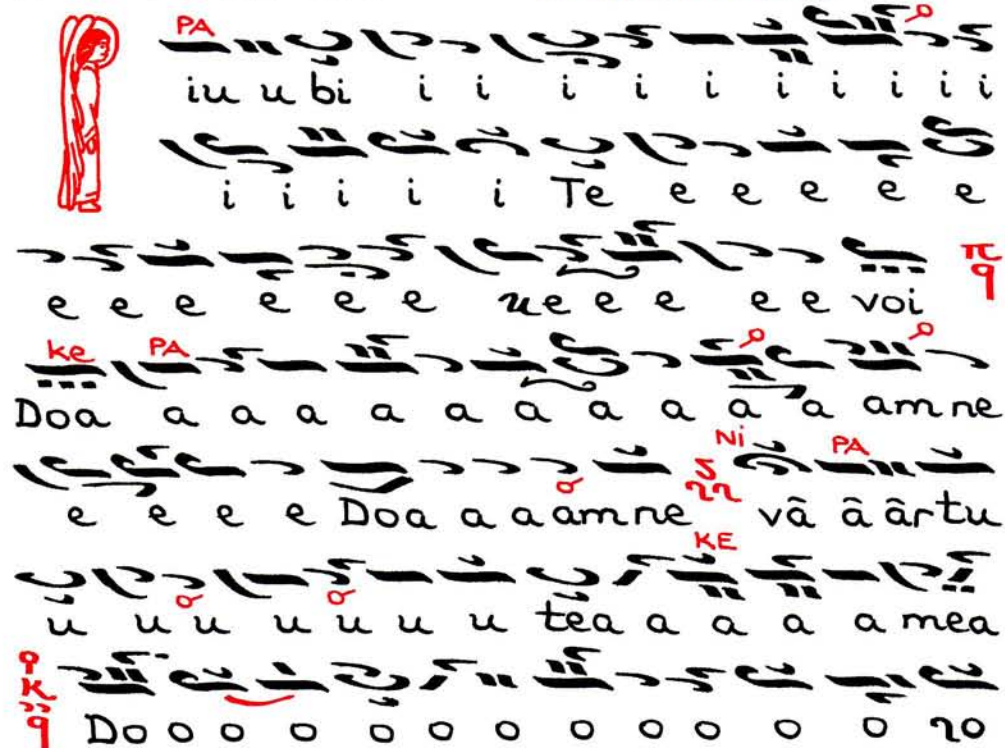 PA
iu u bi i i i i i i i i i i
i i i i i Te e e e e e
e e e e e e ue e e e e voi
π q
ke PA
Doa a a a a a a a a a a am ne
Ni PA
e e e e Doa a a am ne vâ â âr tu
KE
u u u u u u u tea a a a a mea
Do o o o o o o o o o o o ro